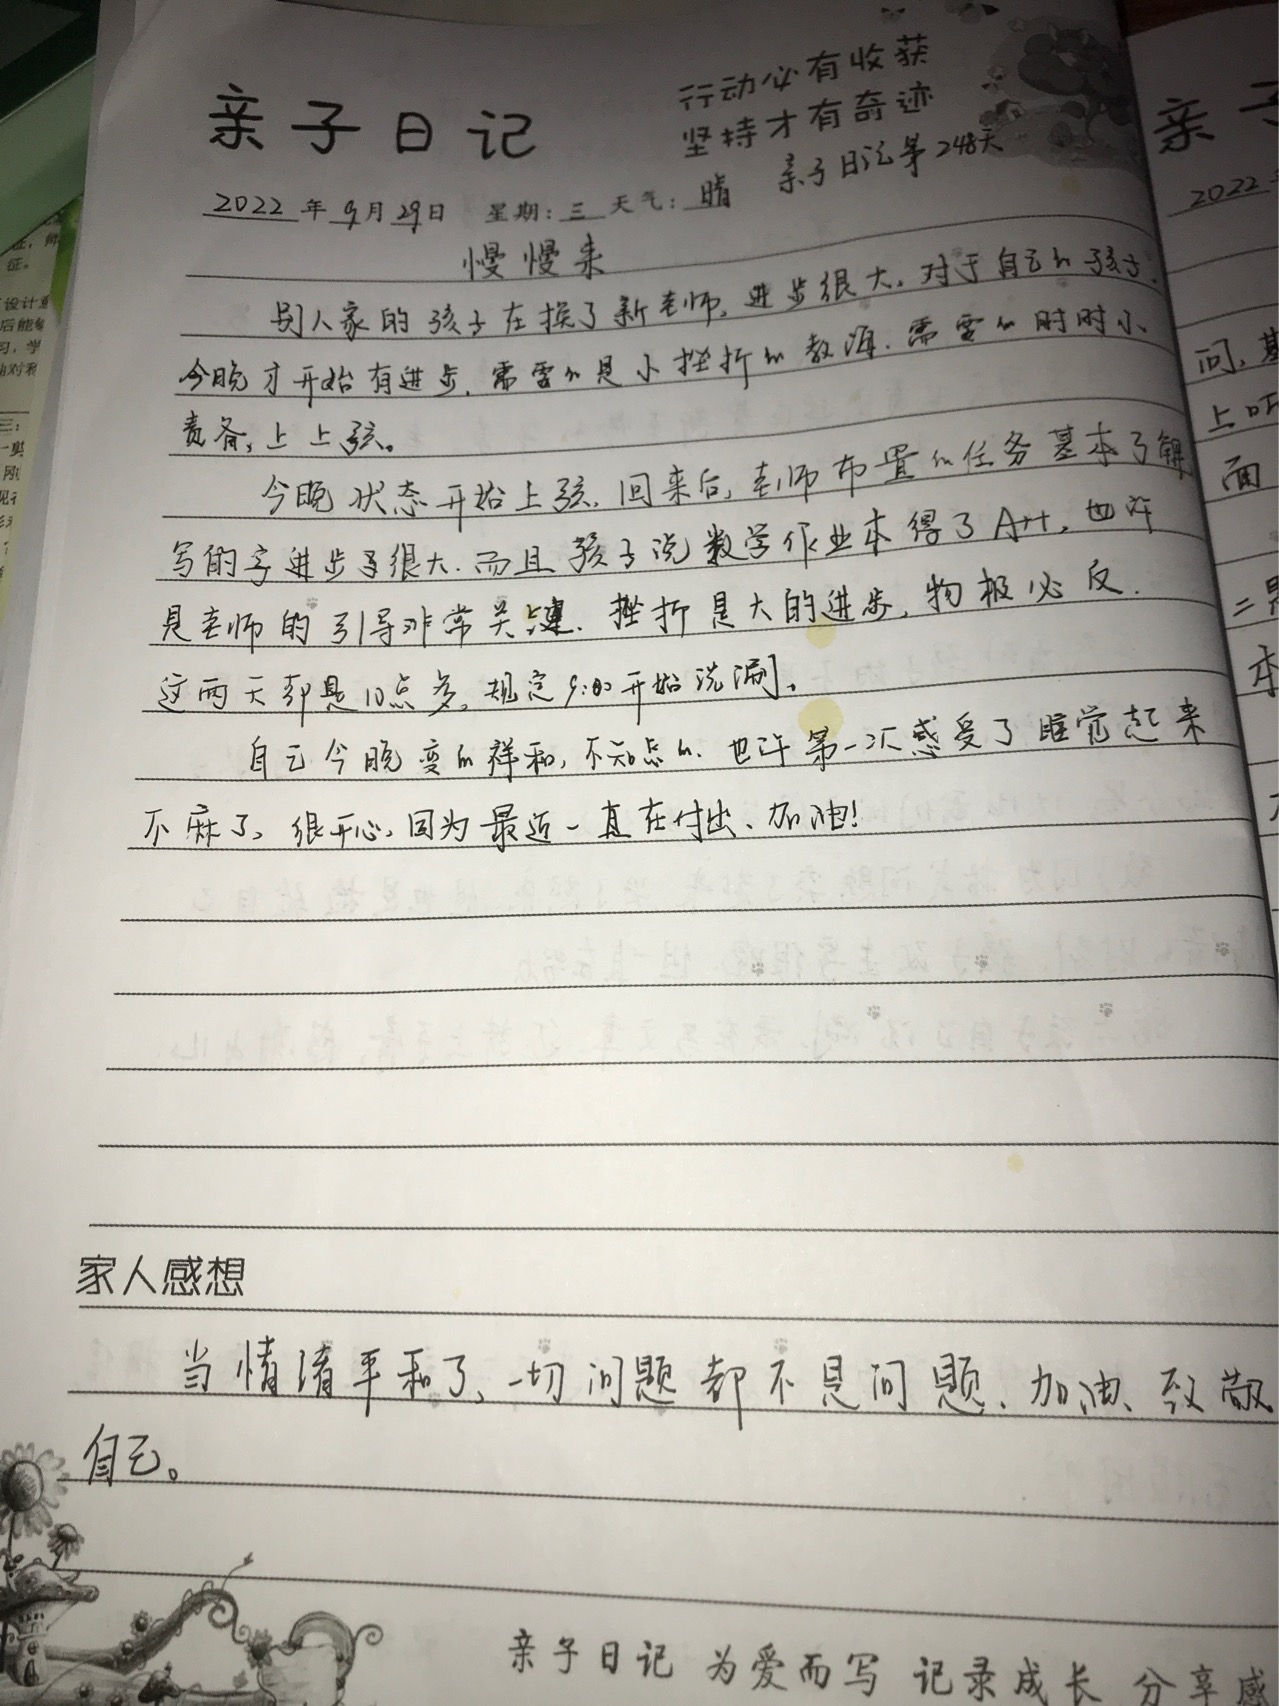 亲子日记
行动必有收获
坚持才有奇迹
亲子日记第248天
2022年9月29日 星期:三 天气:晴
慢慢来
别人家的孩子在换了新老师,进步很大。对于自己的孩子,
今晚才开始有进步,需要的是小挫折的教诲,需要的时时小
责备,上上弦。
今晚状态开始上弦,回来后,老师布置的任务基本了解
写的字进步了很大,而且孩子说数学作业本得了A++,也许
是老师的引导非常关键,挫折是大的进步,物极必反.
这两天都是10点多,规定9:00开始洗涮。
自己今晚变的祥和,不知点的,也许第一次感受了睡觉起来
不麻了,很开心,因为最近一直在付出、加油!
家人感想
当情绪平和了,一切问题都不是问题、加油、致敬
自己。
亲子日记 为爱而写 记录成长 分享感
亲子
2022
问,
上
面
二
本
设计
后能
习,学